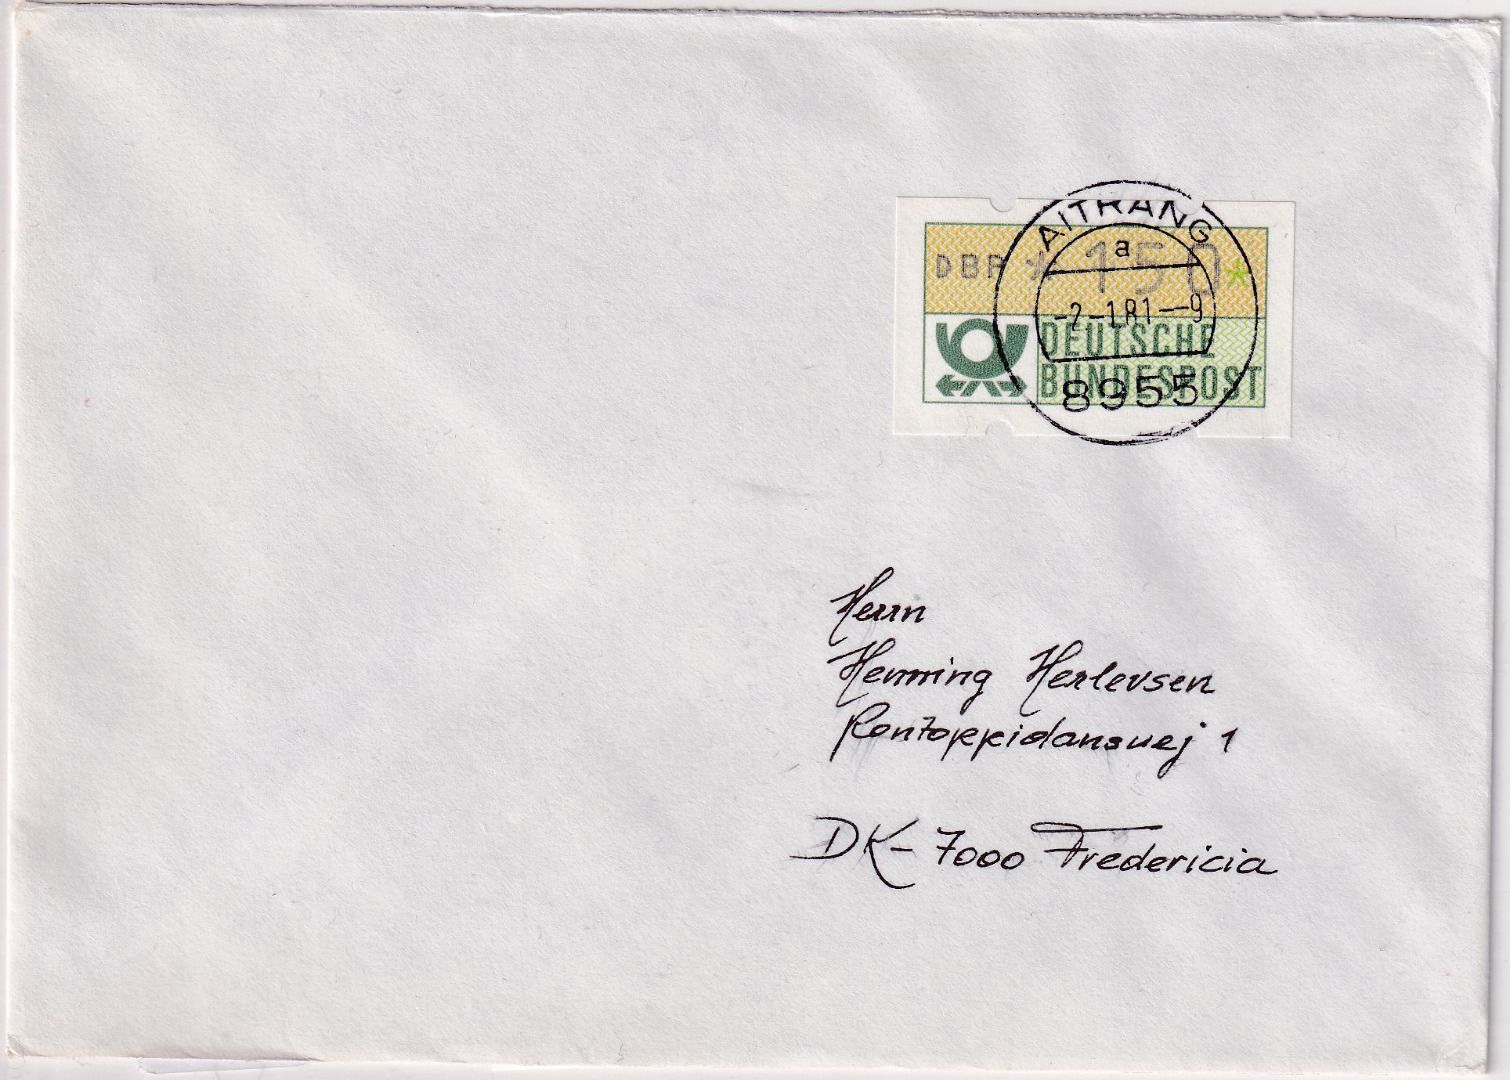 AITRANG
a
DBP * 150 *
-2-1.81--9
DEUTSCHE
BUNDESPOST
8955
Herrn
Henning Herlevsen
Pontoppidansvej 1
DK- 7000 Fredericia